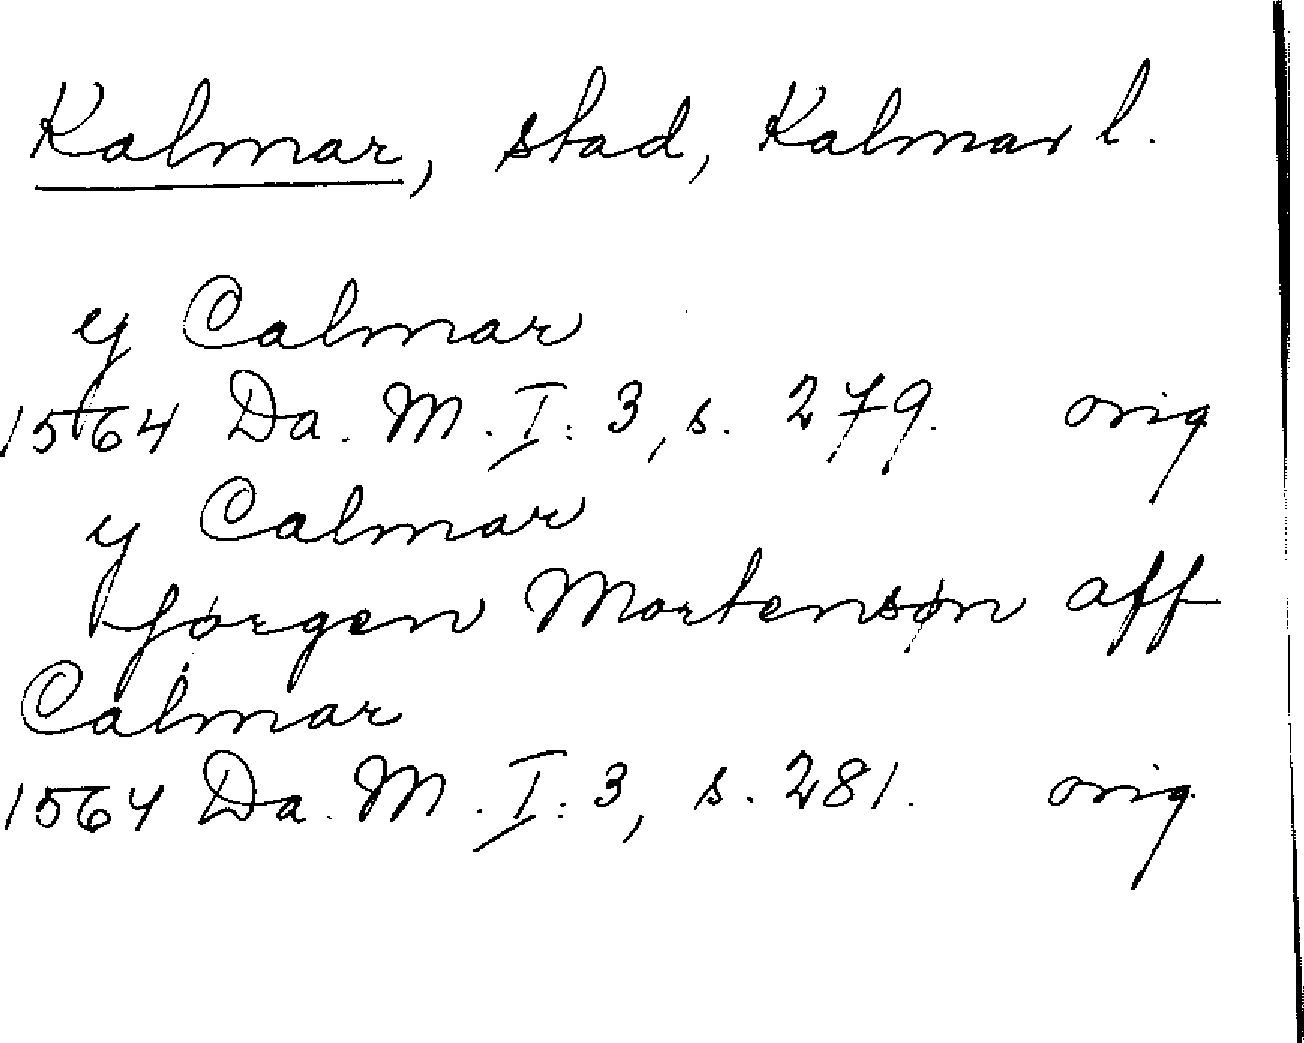 Kalmar, stad, Kalmar l.
y Calmar
1564 Da. M. I: 3, s. 279. orig
y Calmar
Jørgen Mortensøn aff
Calmar
1564 Da. M. I: 3, s. 281. orig.